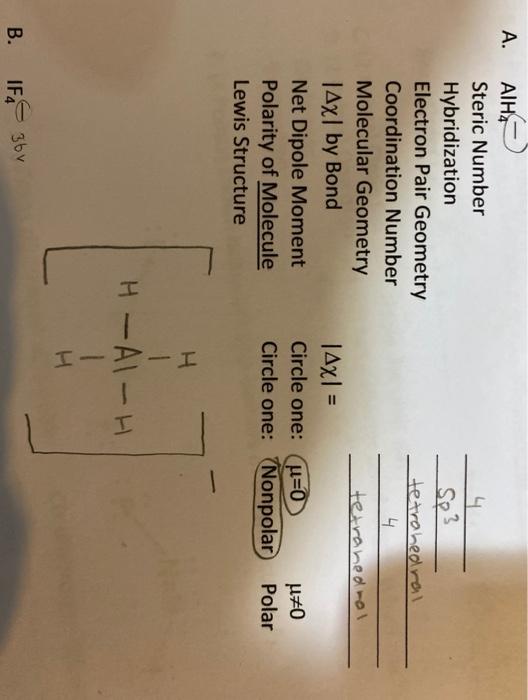 A. AlH₄⁻
Steric Number 4
Hybridization sp³
Electron Pair Geometry tetrahedral
Coordination Number 4
Molecular Geometry tetrahedral
|Δχ| by Bond |Δχ| =
Net Dipole Moment Circle one: μ=0 μ≠0
Polarity of Molecule Circle one: Nonpolar Polar
Lewis Structure
H
H — Al — H
H
B. IF₄⁻ 36v